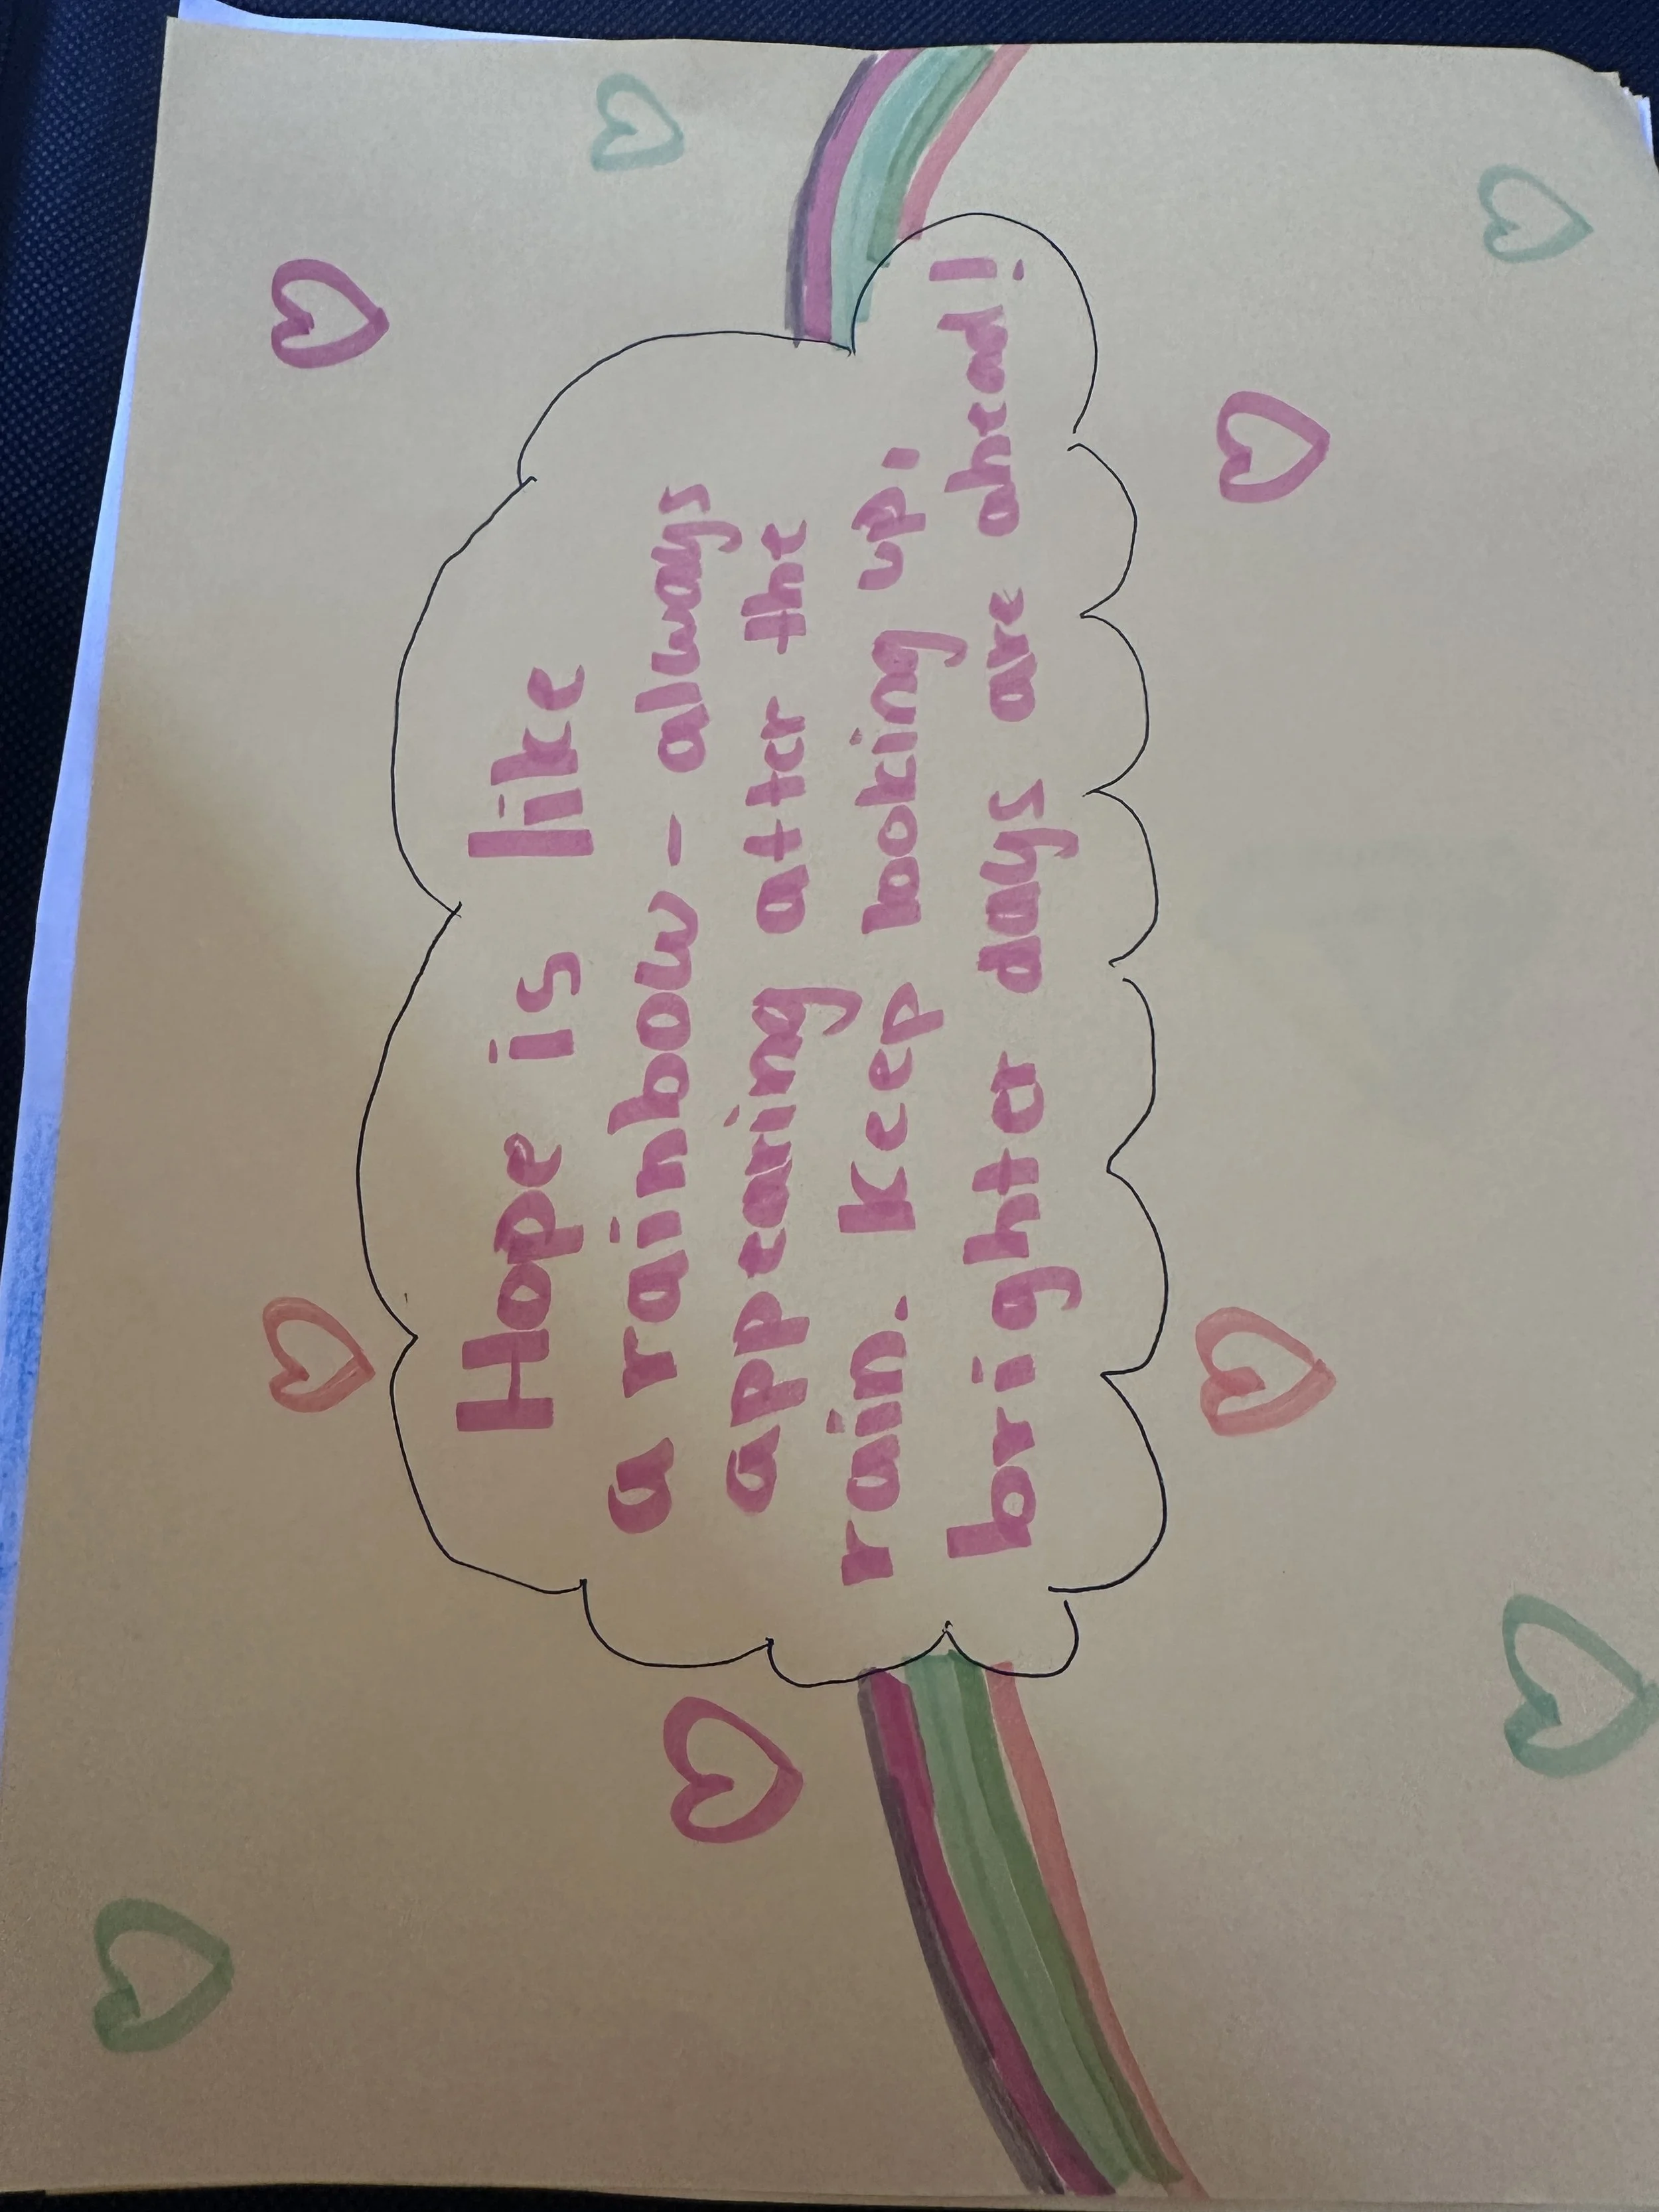 Hope is like
a rainbow - always
appearing atter the
rain. Keep looking up,
brighter days are ahead!